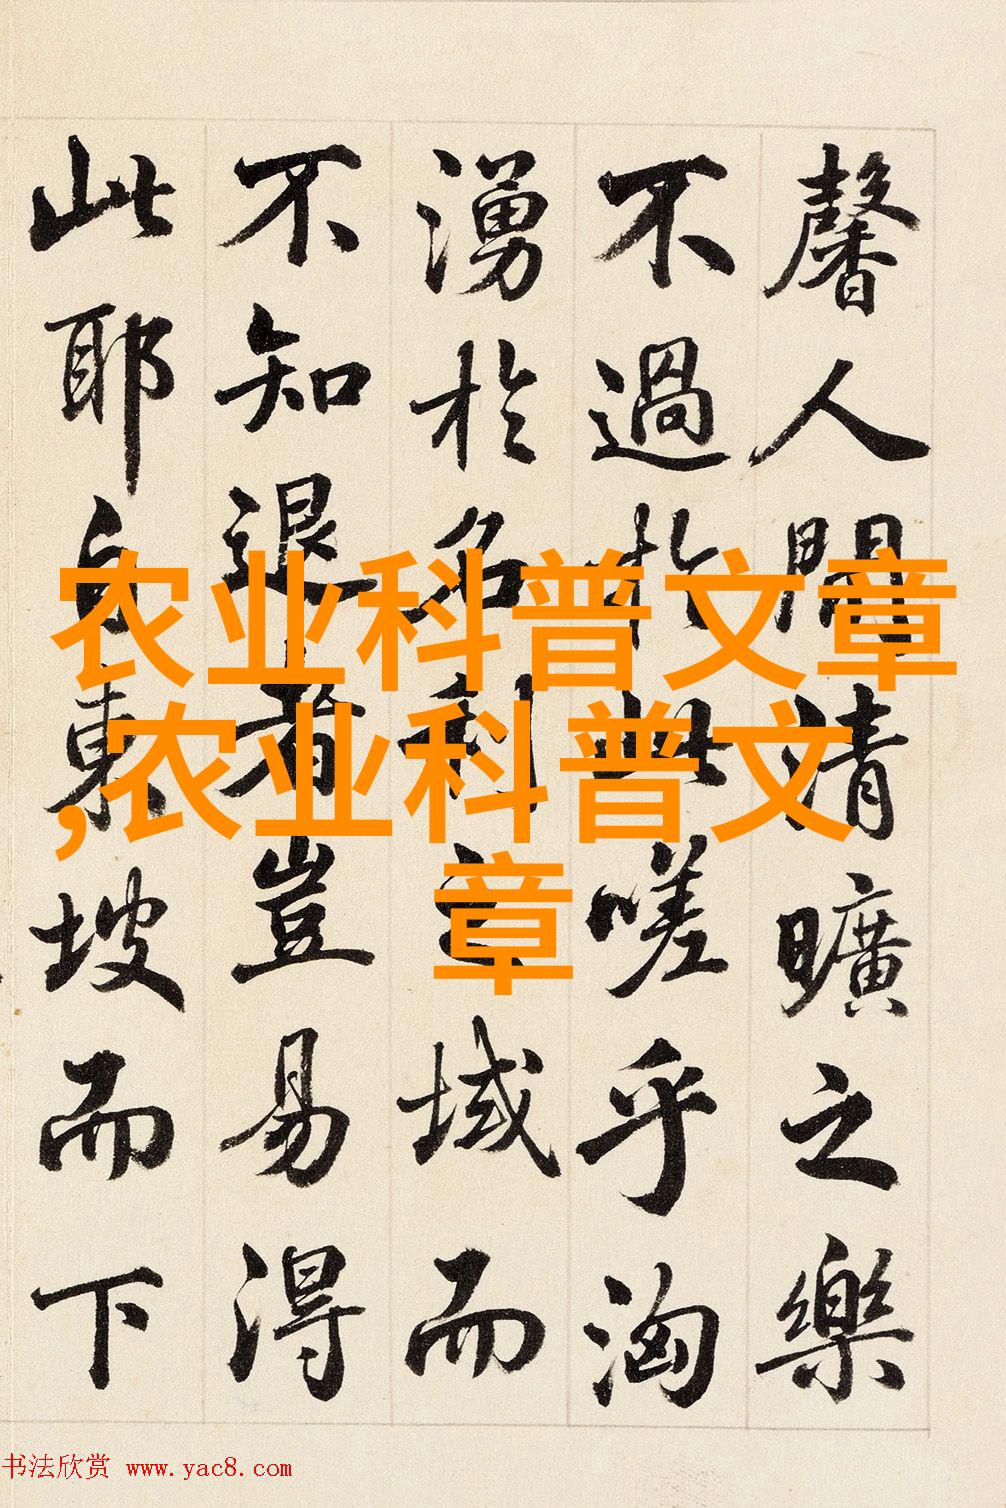 馨人間清曠之樂
不過於此嗟乎洶
湧於名利之域而
不知退者豈易得
此耶自東坡而下
农业科普文章
,农业科普文
章
书法欣赏 www.yac8.com